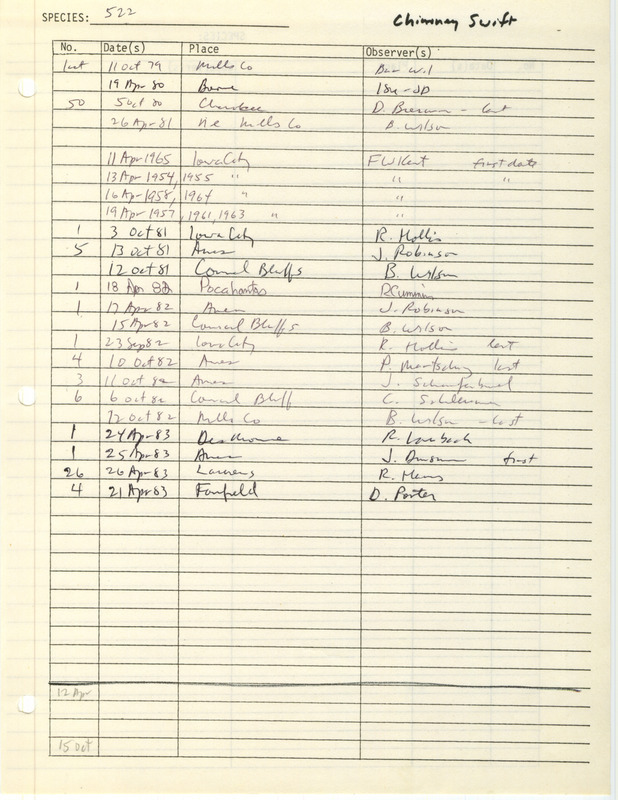 SPECIES: 522 Chimney Swift
No. Date(s) Place Observer(s)
last 11 Oct 79 Mills Co
19 Apr 80 Boone
50 5 Oct 80 Cherokee D. Bierman - last
26 Apr 81 NE Mills Co B. Wilson
11 Apr 1965 Iowa City FW Kent first date
13 Apr 1954, 1955 " " "
16 Apr 1958, 1964 " "
19 Apr 1957, 1961, 1963 " "
1 3 Oct 81 Iowa City R. Hollis
5 13 Oct 81 Ames J. Robinson
12 Oct 81 Council Bluffs B. Wilson
1 18 Apr 82 Pocahontas R Cummins
1 17 Apr 82 Ames J. Robinson
15 Apr 82 Council Bluffs B. Wilson
1 23 Sep 82 Iowa City R. Hollis last
4 10 Oct 82 Ames P. Martsching last
3 11 Oct 82 Ames J.
6 6 Oct 82 Council Bluff C.
12 Oct 82 Mills Co B. Wilson - last
1 24 Apr 83 Des Moines R.
1 25 Apr 83 Ames J. Dinsmore first
26 26 Apr 83 Laurens R.
4 21 Apr 83 Fairfield D. Porter
12 Apr
15 Oct